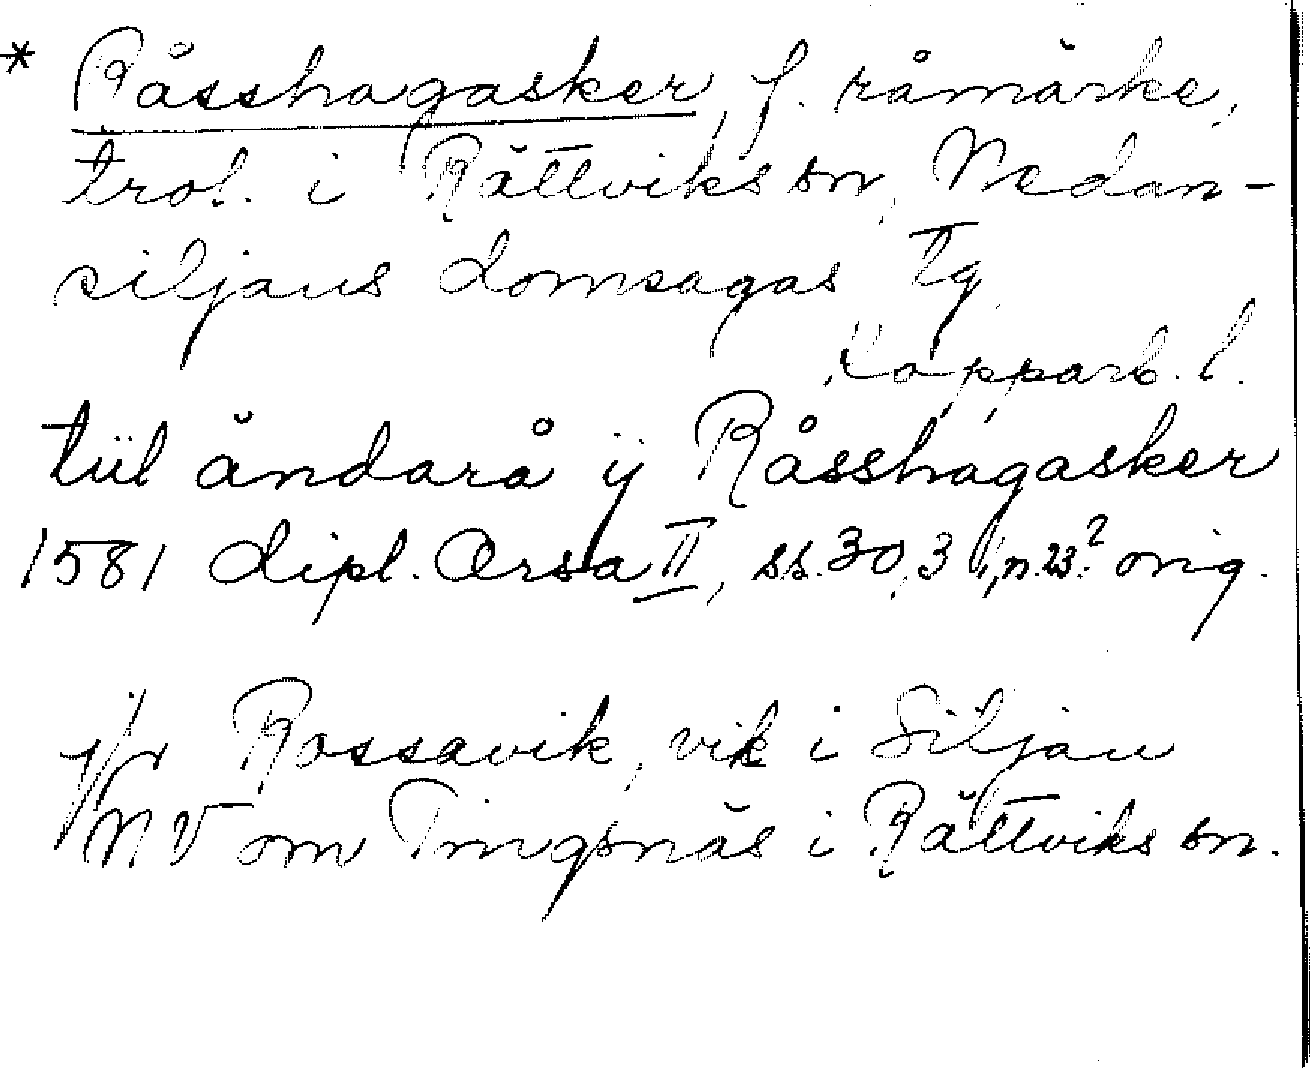 * Råsshagasker, f. råmärke,
trol. i Rättviks sn, Nedan-
siljans domsagas tg
Kopparb. l.
tiil ändarå ÿ Råsshagasker
1581 dipl. Orsa II, ss. 30, 31, n. 23? orig.
jfr Rossavik, vik i Siljan
NV om Tingsnäs i Rättviks sn.